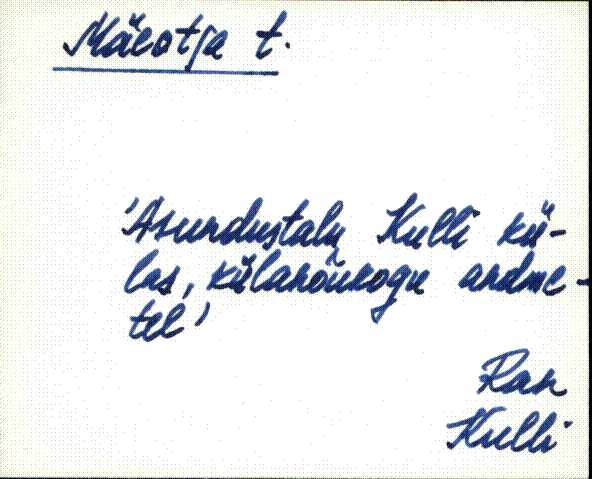 Mäeotsa t.
'Asundustalu Kulli kü-
las, külanõukogu andme-
tel'
Ran
Kulli